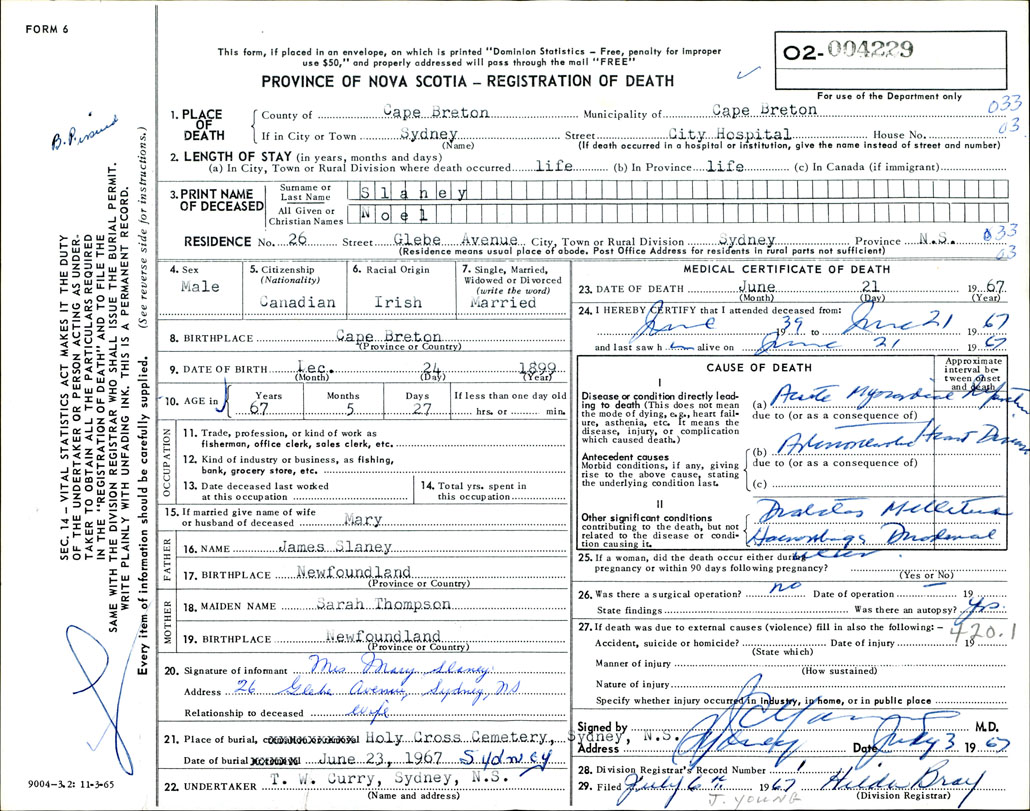 FORM 6
This form, if placed in an envelope, on which is printed "Dominion Statistics – Free, penalty for improper
use $50," and properly addressed will pass through the mail "FREE"
PROVINCE OF NOVA SCOTIA – REGISTRATION OF DEATH
02-004229
For use of the Department only
SEC. 14 – VITAL STATISTICS ACT MAKES IT THE DUTY
OF THE UNDERTAKER OR PERSON ACTING AS UNDER-
TAKER TO OBTAIN ALL THE PARTICULARS REQUIRED
IN THE "REGISTRATION OF DEATH" AND TO FILE THE
SAME WITH THE DIVISION REGISTRAR WHO SHALL ISSUE THE BURIAL PERMIT.
WRITE PLAINLY WITH UNFADING INK. THIS IS A PERMANENT RECORD.
Every item of information should be carefully supplied. (See reverse side for instructions.)
1. PLACE OF DEATH County of Cape Breton Municipality of Cape Breton 033
If in City or Town Sydney Street City Hospital House No. 03
(Name) (If death occurred in a hospital or institution, give the name instead of street and number)
2. LENGTH OF STAY (in years, months and days)
(a) In City, Town or Rural Division where death occurred life (b) In Province life (c) In Canada (if immigrant)
3. PRINT NAME OF DECEASED Surname or Last Name Slaney
All Given or Christian Names Noel
RESIDENCE No. 26 Street Glebe Avenue City, Town or Rural Division Sydney Province N.S. 033
(Residence means usual place of abode. Post Office Address for residents in rural parts not sufficient) 03
4. Sex Male
5. Citizenship (Nationality) Canadian
6. Racial Origin Irish
7. Single, Married, Widowed or Divorced (write the word) Married
8. BIRTHPLACE Cape Breton
(Province or County)
9. DATE OF BIRTH Dec. 24 1899
(Month) (Day) (Year)
10. AGE in Years Months Days If less than one day old
67 5 27 hrs. or min.
OCCUPATION
11. Trade, profession, or kind of work as
fisherman, office clerk, sales clerk, etc.
12. Kind of industry or business, as fishing,
bank, grocery store, etc.
13. Date deceased last worked at this occupation
14. Total yrs. spent in this occupation
15. If married give name of wife
or husband of deceased Mary
FATHER
16. NAME James Slaney
17. BIRTHPLACE Newfoundland
(Province or Country)
MOTHER
18. MAIDEN NAME Sarah Thompson
19. BIRTHPLACE Newfoundland
(Province or County)
20. Signature of informant Mrs. Mary Slaney
Address 26 Glebe Avenue, Sydney, NS
Relationship to deceased wife
21. Place of burial, Holy Cross Cemetery, Sydney, N.S.
Date of burial June 23, 1967 Sydney
22. UNDERTAKER T. W. Curry, Sydney, N.S.
(Name and address)
9004-3.2: 11-3-65
MEDICAL CERTIFICATE OF DEATH
23. DATE OF DEATH June 21 1967
(Month) (Day) (Year)
24. I HEREBY CERTIFY that I attended deceased from:
June 1939 to June 21 1967
and last saw him alive on June 21 1967
CAUSE OF DEATH
Approximate interval between onset and death
I
Disease or condition directly lead-
ing to death (This does not mean
the mode of dying, e.g., heart fail-
ure, asthenia, etc. It means the
disease, injury, or complication
which caused death.)
(a) Acute Myocardial Infarction
due to (or as a consequence of)
Antecedent causes
Morbid conditions, if any, giving
rise to the above cause, stating
the underlying condition last.
(b) Heart Disease
due to (or as a consequence of)
(c)
II
Other significant conditions
contributing to the death, but not
related to the disease or condi-
tion causing it.
Diabetes Mellitus
Duodenal
Ulcer
25. If a woman, did the death occur either during
pregnancy or within 90 days following pregnancy?
(Yes or No)
26. Was there a surgical operation? no Date of operation – 19
State findings Was there an autopsy? Yes.
27. If death was due to external causes (violence) fill in also the following: – 420.1
Accident, suicide or homicide? Date of injury 19
(State which)
Manner of injury
(How sustained)
Nature of injury
Specify whether injury occurred in industry, in home, or in public place
Signed by M.D.
Address Sydney Date July 3 1967
28. Division Registrar's Record Number
29. Filed July 6 1967 Hilda Bray
(Division Registrar)
J. YOUNG